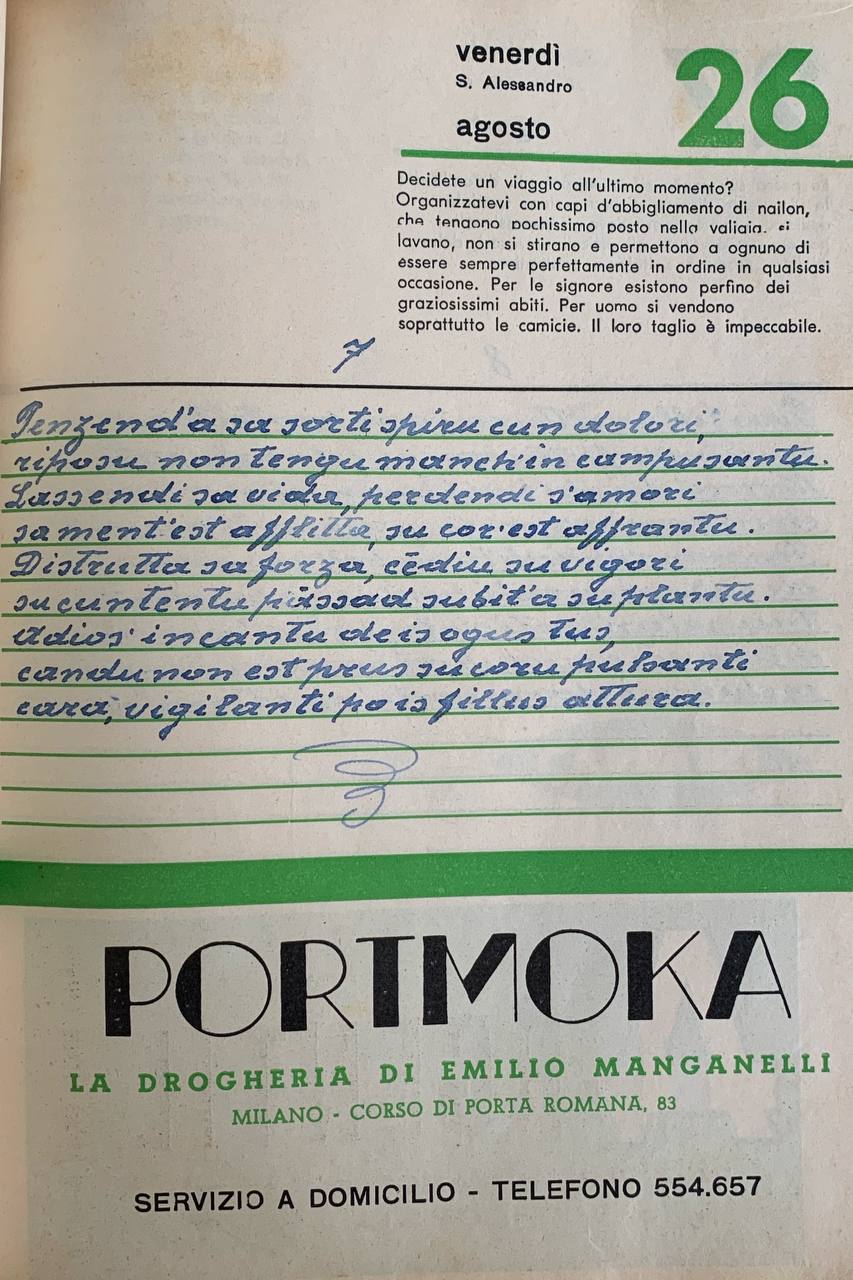 venerdì
S. Alessandro
agosto
26
Decidete un viaggio all'ultimo momento?
Organizzatevi con capi d'abbigliamento di nailon,
che tengono pochissimo posto nella valigia, si
lavano, non si stirano e permettono a ognuno di
essere sempre perfettamente in ordine in qualsiasi
occasione. Per le signore esistono perfino dei
graziosissimi abiti. Per uomo si vendono
soprattutto le camicie. Il loro taglio è impeccabile.
7
Penzend'a sa sorti spiru cun dolori,
riposu non tengu manch'in campusantu.
Lassendi sa vida, perdendi s'amori
sa ment'est afflitta, su cor'est affrantu.
Distrutta sa forza, cēdiu su vigori
su cuntentu passad subit'a su plantu.
Adios' incantu de is ogus tus,
candu non est prus su coru pulsanti
cara, vigilanti po is fillus attura.
PORTMOKA
LA DROGHERIA DI EMILIO MANGANELLI
MILANO - CORSO DI PORTA ROMANA, 83
SERVIZIO A DOMICILIO - TELEFONO 554.657